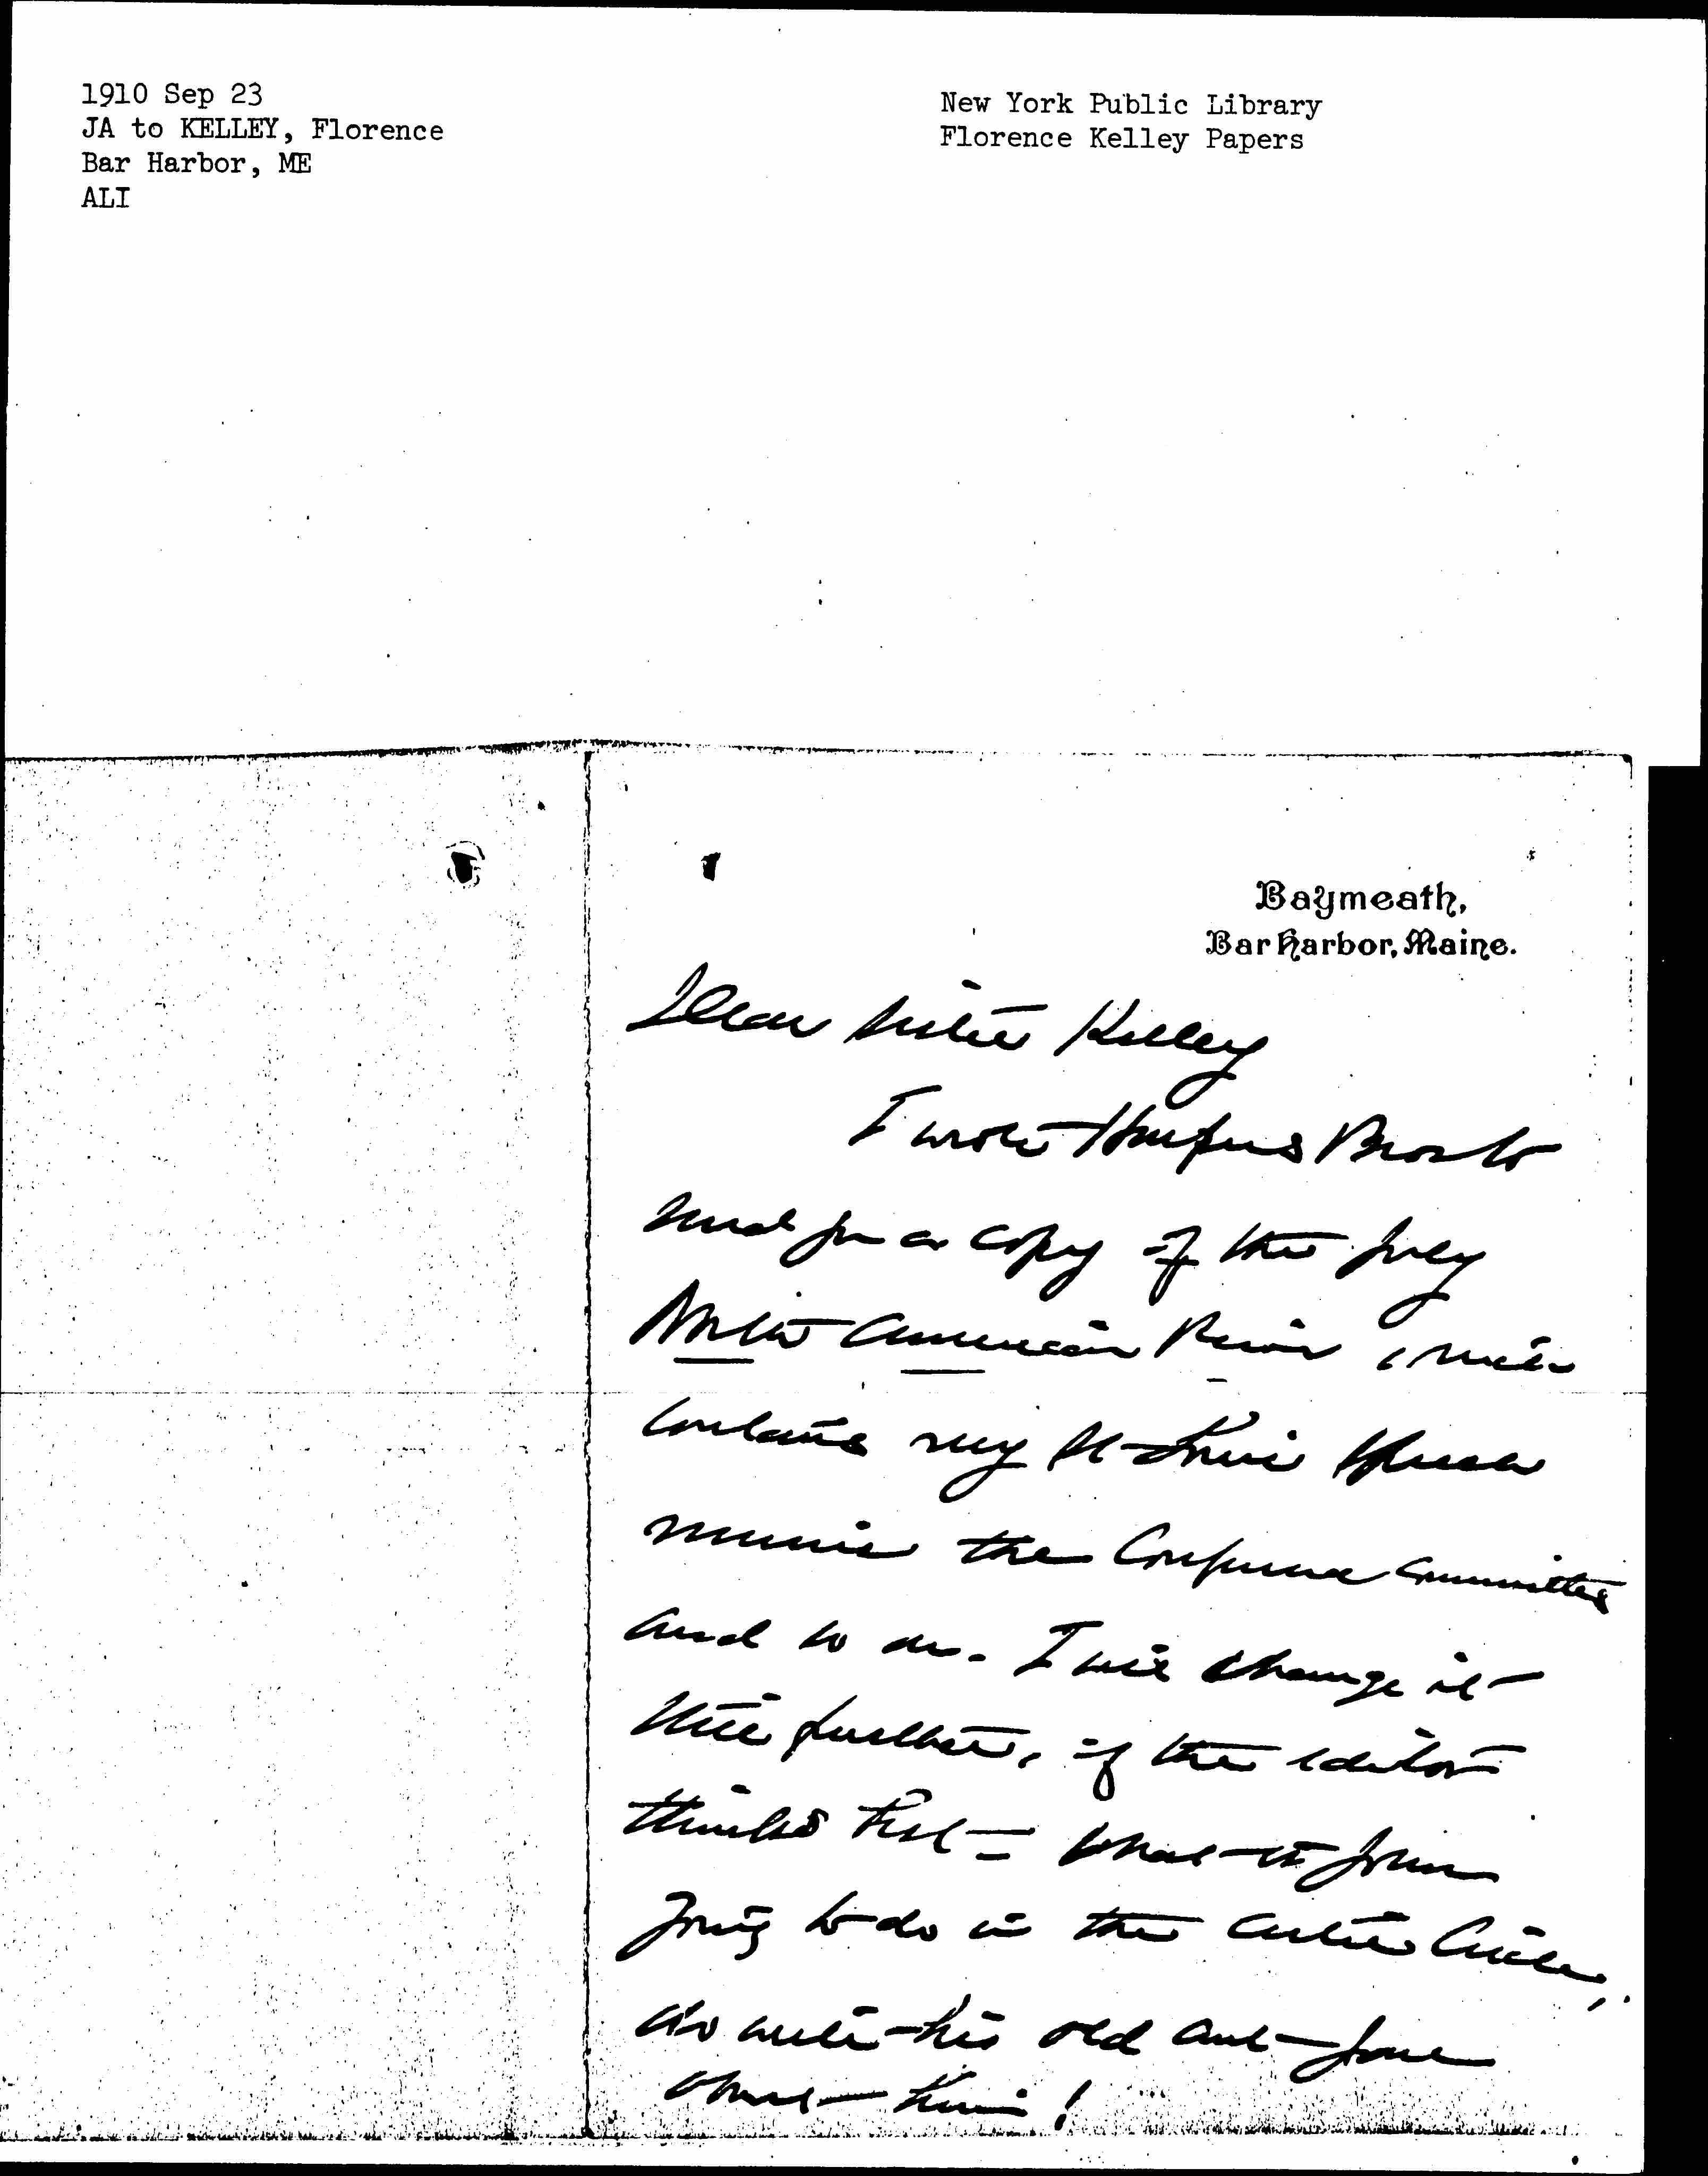 1910 Sep 23
JA to KELLEY, Florence
Bar Harbor, ME
ALI
New York Public Library
Florence Kelley Papers
Baymeath,
Bar Harbor, Maine.
Dear Sister Kelley
I wrote Harpers Bros to
send for a copy of the July
North American Review, which
contains my St Louis speech
minus the Conference Committee
and so on. I will change it
still further, if the editor
thinks best = What is John
going to do in the
his old aunt Jane
him!